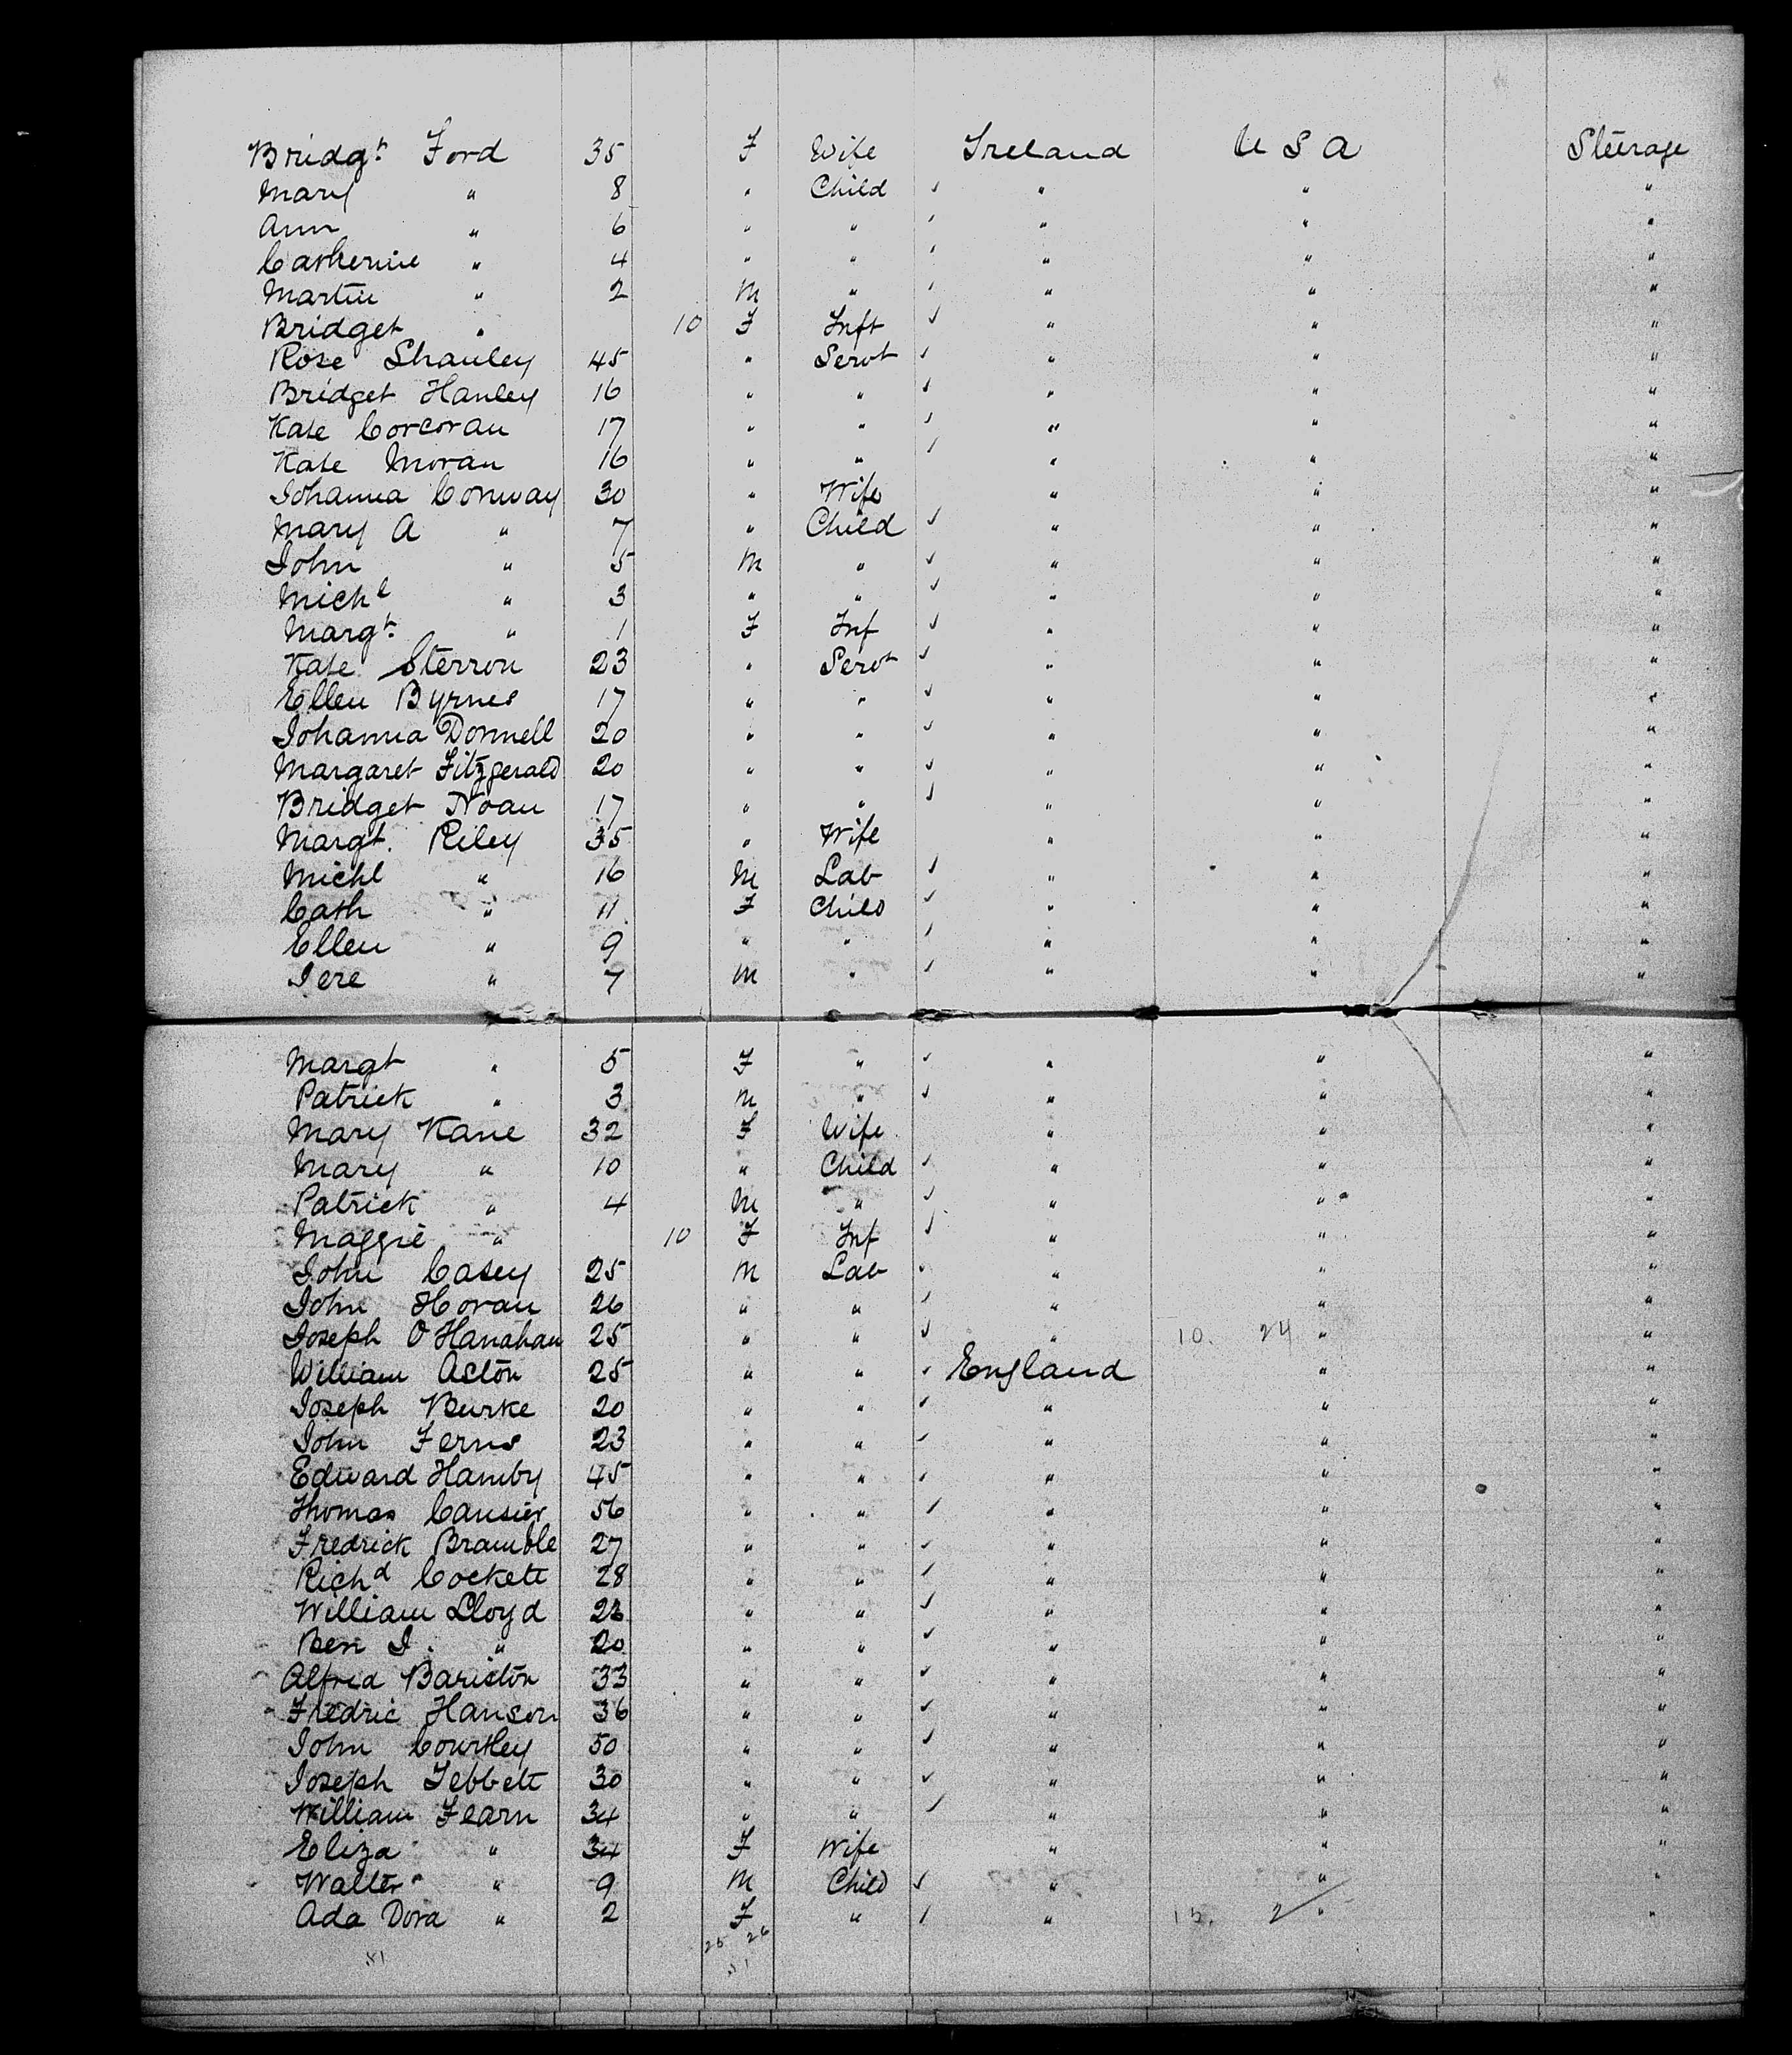 Bridgt Ford 35 F Wife Ireland U S A Steerage
Mary " 8 " Child ✓ " " "
Ann " 6 " " ✓ " " "
Catherine " 4 " " ✓ " " "
Martin " 2 M " ✓ " " "
Bridget " 10 F Inft ✓ " " "
Rose Shanley 45 " Servt ✓ " " "
Bridget Hanley 16 " " ✓ " " "
Kate Corcoran 17 " " ✓ " " "
Kate Moran 16 " " ✓ " " "
Johanna Conway 30 " Wife " " "
Mary A " 7 " Child ✓ " " "
John " 5 M " ✓ " " "
Michl " 3 " " ✓ " " "
Margt " 1 F Inf ✓ " " "
Kate Sterron 23 " Servt ✓ " " "
Ellen Byrnes 17 " " ✓ " " "
Johanna Donnell 20 " " ✓ " " "
Margaret Fitzgerald 20 " " ✓ " " "
Bridget Noan 17 " " ✓ " " "
Margt. Riley 35 " Wife " " "
Michl " 16 M Lab ✓ " " "
Cath " 11 F Child ✓ " " "
Ellen " 9 " " ✓ " " "
Jere " 7 M " ✓ " " "
Margt " 5 F " ✓ " " "
Patrick " 3 M " ✓ " " "
Mary Kane 32 F Wife " " "
Mary " 10 " Child ✓ " " "
Patrick " 4 M " ✓ " " "
Maggie " 10 F Inf ✓ " " "
John Casey 25 M Lab ✓ " " "
John Horan 26 " " ✓ " " "
Joseph O'Hanahan 25 " " ✓ " 10. 24 " "
William Acton 25 " " ✓ England " "
Joseph Burke 20 " " ✓ " " "
John Ferns 23 " " ✓ " " "
Edward Hamby 45 " " ✓ " " "
Thomas Causier 56 " " ✓ " " "
Fredrick Bramble 27 " " ✓ " " "
Richd Cockett 28 " " ✓ " " "
William Lloyd 22 " " ✓ " " "
Ben J. " 20 " " ✓ " " "
Alfred Bariston 33 " " ✓ " " "
Fredric Hanson 36 " " ✓ " " "
John Courtley 50 " " ✓ " " "
Joseph Tebbett 30 " " ✓ " " "
William Fearn 34 " " ✓ " " "
Eliza " 34 F Wife " " "
Walter " 9 M Child ✓ " " "
Ada Dora " 2 F " ✓ " 15. 2 " "
25 26
51 51